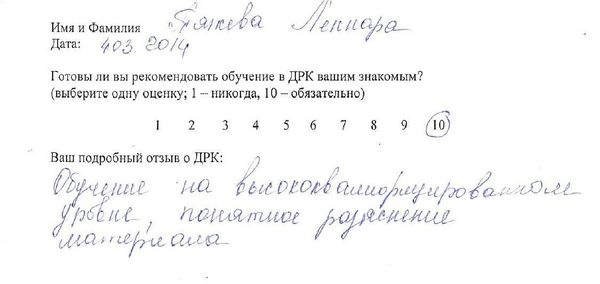 Имя и Фамилия Тякева Леннара
Дата: 4 03 2014
Готовы ли вы рекомендовать обучение в ДРК вашим знакомым?
(выберите одну оценку; 1 – никогда, 10 – обязательно)
1 2 3 4 5 6 7 8 9 10
Ваш подробный отзыв о ДРК:
Обучение на высококвалифицированном
уровне, понятное разяснение
материала